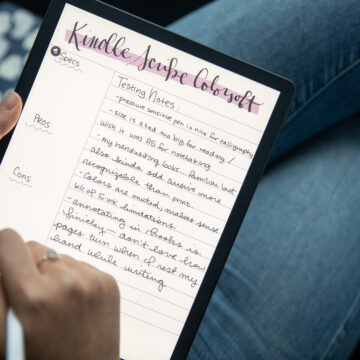 Kindle Scribe Colorsoft
Specs
Testing Notes:
- pressure sensitive pen is nice for calligraphy
- size is a tad too big for reading /
wish it was A5 for notetaking
- my handwriting looks familiar but
also kinda
recognizable than print.
- Colors are muted, makes sense
b/c of E-ink limitations.
- annotating in books is
finicky - don't love how
pages turn when I rest my
hand while writing
Pros
Cons